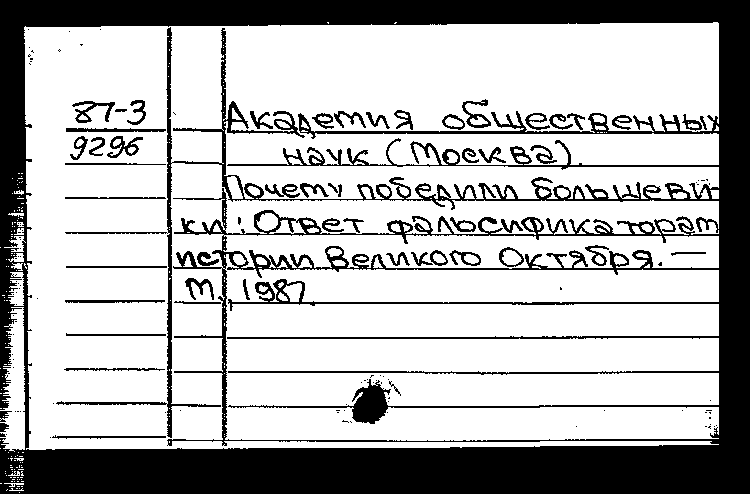 87-3
9296
Академия общественных
наук (Москва).
Почему победили большеви-
ки: Ответ фальсификаторам
истории Великого Октября. —
М., 1987.